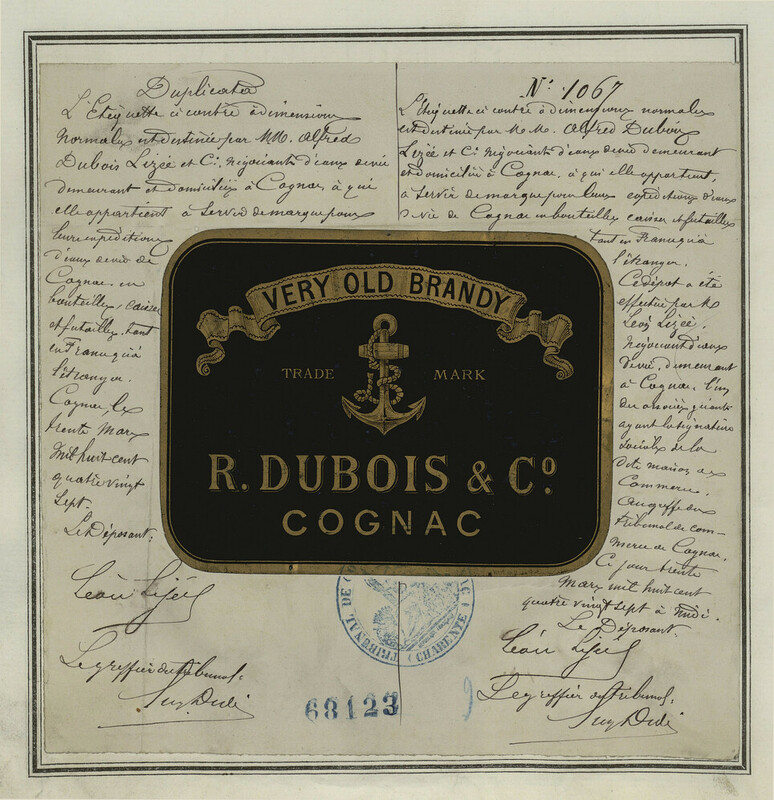 Duplicata
L'Etiquette ci contre à dimensions
normales est destinée par MM. Alfred
Dubois Lizée et Cie. négociants d'eaux de vie
demeurant et domiciliés à Cognac, à qui
elle appartient à servir de marque pour
leurs expéditions
d'eaux de vie de
Cognac, en
bouteilles, caisses
et futailles, tant
en France qu'à
l'étranger.
Cognac, le
trente Mars
mil huit cent
quatre vingt
sept.
Le Déposant:
Léon Lizée
Le greffier du tribunal,
N° 1067
L'Etiquette ci contre à dimensions normales
est destinée par MM. Alfred Dubois
Lizée et Cie négociants d'eaux de vie demeurant
et domiciliés à Cognac, à qui elle appartient,
à servir de marque pour leurs expéditions d'eaux
de vie de Cognac en bouteilles caisses et futailles
tant en France qu'à
l'étranger.
Ce dépôt a été
effectué par M
Léon Lizée,
négociant d'eaux
de vie, demeurant
à Cognac, l'un
des associés gérants
ayant la signature
sociale de la
dite maison de
Commerce,
au greffe du
tribunal de com-
merce de Cognac,
Ce jour trente
Mars mil huit cent
quatre vingt sept à midi.
Le Déposant.
Léon Lizée
Le greffier du tribunal,
VERY OLD BRANDY
TRADE MARK
R. DUBOIS & Co.
COGNAC
TRIBUNAL DE
(CHARENTE)
68123